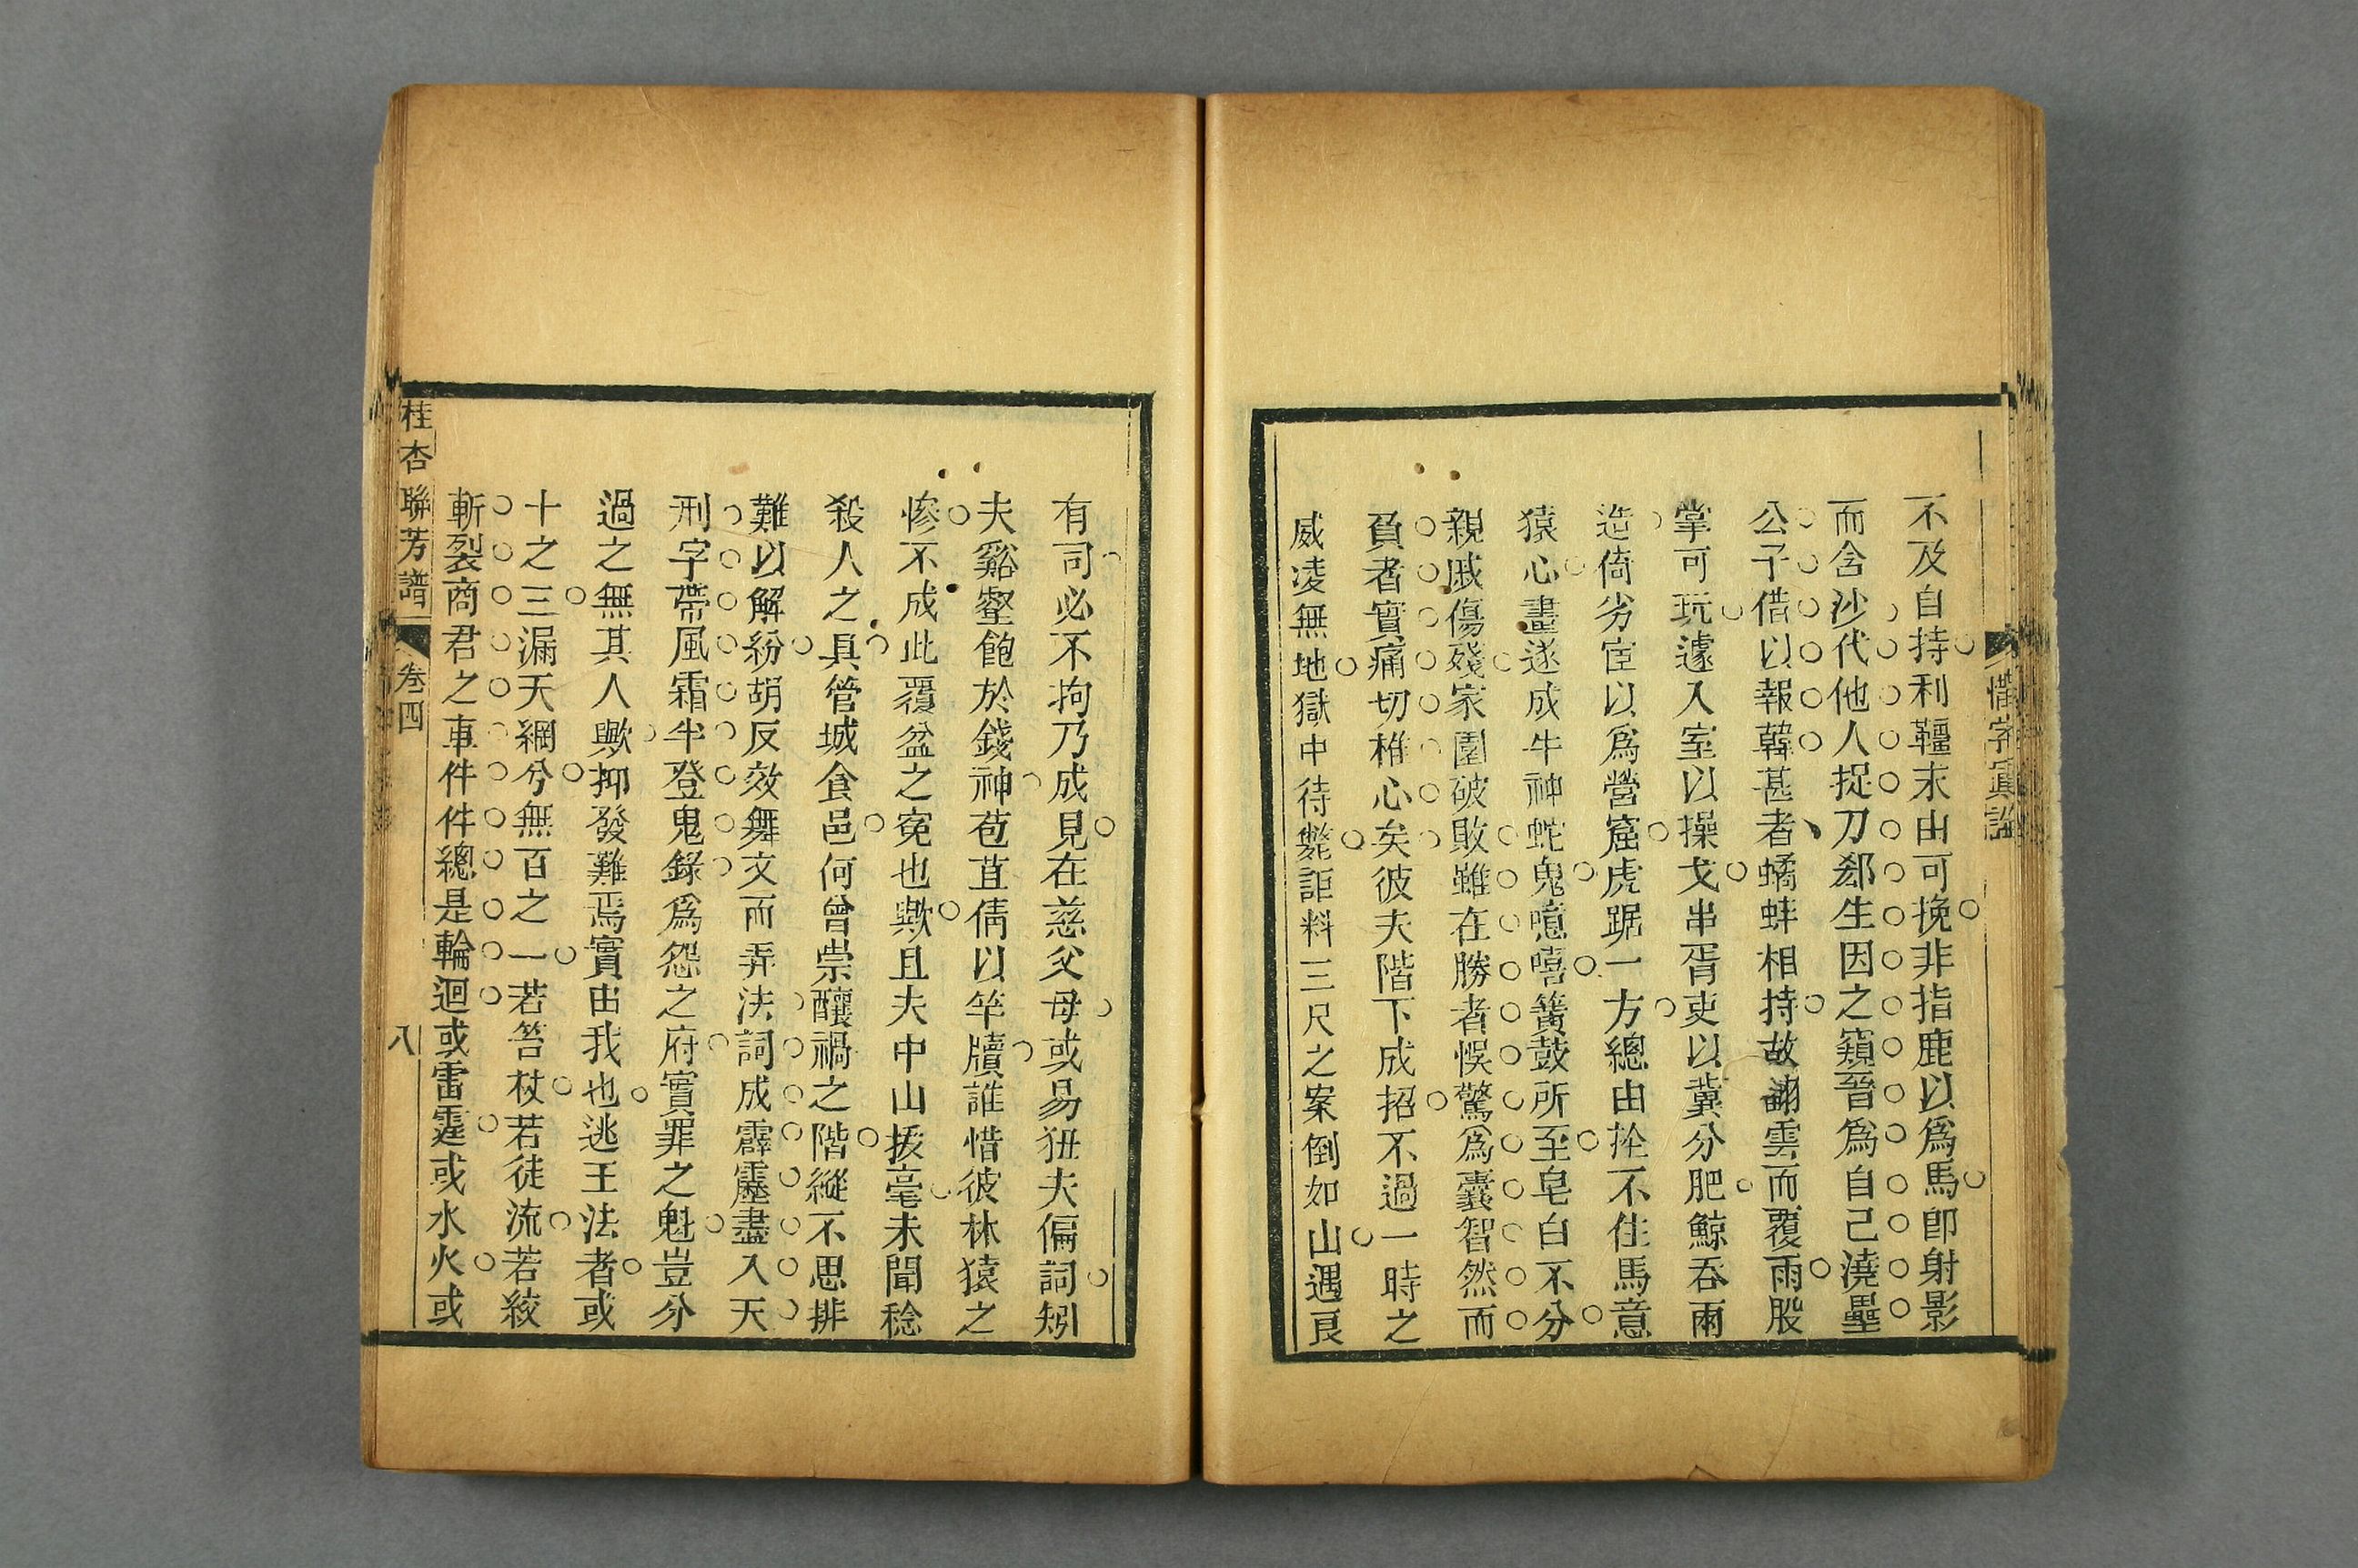 惜字寘論
不及自持利韁末由可挽非指鹿以爲馬卽射影
而含沙代他人捉刀郄生因之窺晉爲自己澆壘
公子借以報韓甚者蟠蚌相持故翻雲而覆雨股
掌可玩遽入室以操戈串胥吏以冀分肥鯨吞雨
造倚劣宦以爲營窟虎踞一方總由拴不住馬意
猿心畫遂成牛神蛇鬼噫嘻簧鼓所至皂白不分
親戚傷殘家園破敗雖在勝者悞驚爲囊智然而
負者實痛切椎心矣彼夫階下成招不過一時之
威凌無地獄中待斃詎料三尺之案倒如山遇良
有司必不拘乃成見在慈父母或易狃夫偏詞矧
夫谿壑飽於錢神苞苴倩以竿牘誰惜彼林猿之
慘不成此覆盆之寃也歟且夫中山拔毫未聞稔
殺人之具管城食邑何曾祟釀禍之階縱不思排
難以解紛胡反效舞文而弄法詞成霹靂盡入天
刑字帶風霜半登鬼錄爲怨之府實罪之魁豈分
過之無其人歟抑發難焉實由我也逃王法者或
十之三漏天網兮無百之一若笞杖若徒流若絞
斬裂商君之車件件總是輪迴或雷霆或水火或
桂杏聯芳譜 卷四 八